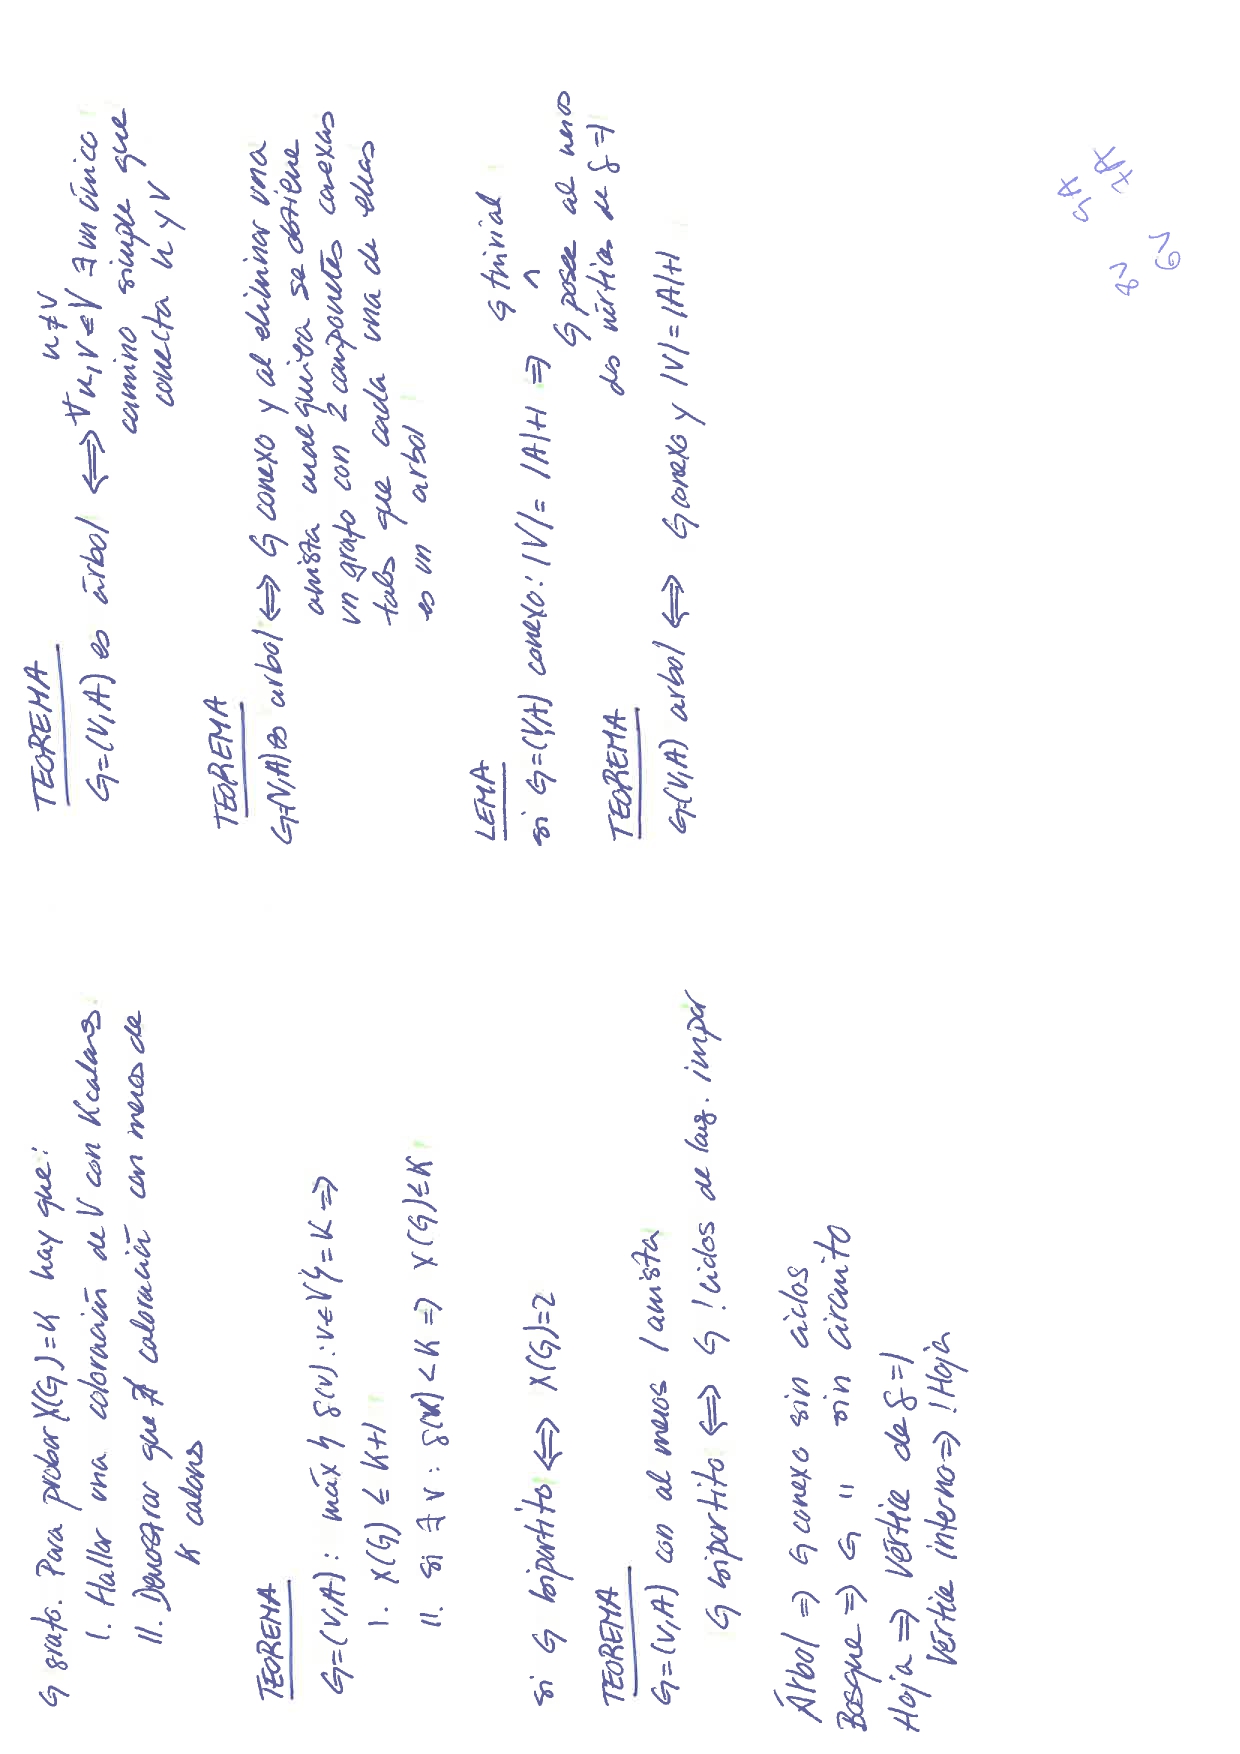 G grafo. Para probar X(G)=K hay que:
I. Hallar una coloración de V con K colores.
II. Demostrar que ∄ coloración con menos de
K colores
TEOREMA
G=(V,A): máx { δ(v): v∈V } = K ⇒
I. X(G) ≤ K+1
II. si ∃ v: δ(v) < K ⇒ X(G) ≤ K
si G bipartito ⇔ X(G)=2
TEOREMA
G=(V,A) con al menos 1 arista
G bipartito ⇔ G ! ciclos de long. impar
Árbol ⇒ G conexo sin ciclos
Bosque ⇒ G " sin circuito
Hoja ⇒ Vértice de δ=1
Vértice interno ⇒ ! Hoja
TEOREMA
u≠v
G=(V,A) es árbol ⇔ ∀u,v∈V ∃ un único
camino simple que
conecta u y v
TEOREMA
G=(V,A) es arbol ⇔ G conexo y al eliminar una
arista cualquiera se obtiene
un grafo con 2 componetes conexas
tales que cada una de ellas
es un arbol
LEMA
G trivial
si G=(V,A) conexo: |V|=|A|+1 ⇒ ^
G posee al menos
dos vértices de δ=1
TEOREMA
G=(V,A) arbol ⇔ G conexo y |V|=|A|+1
5A
7A
8V
6V